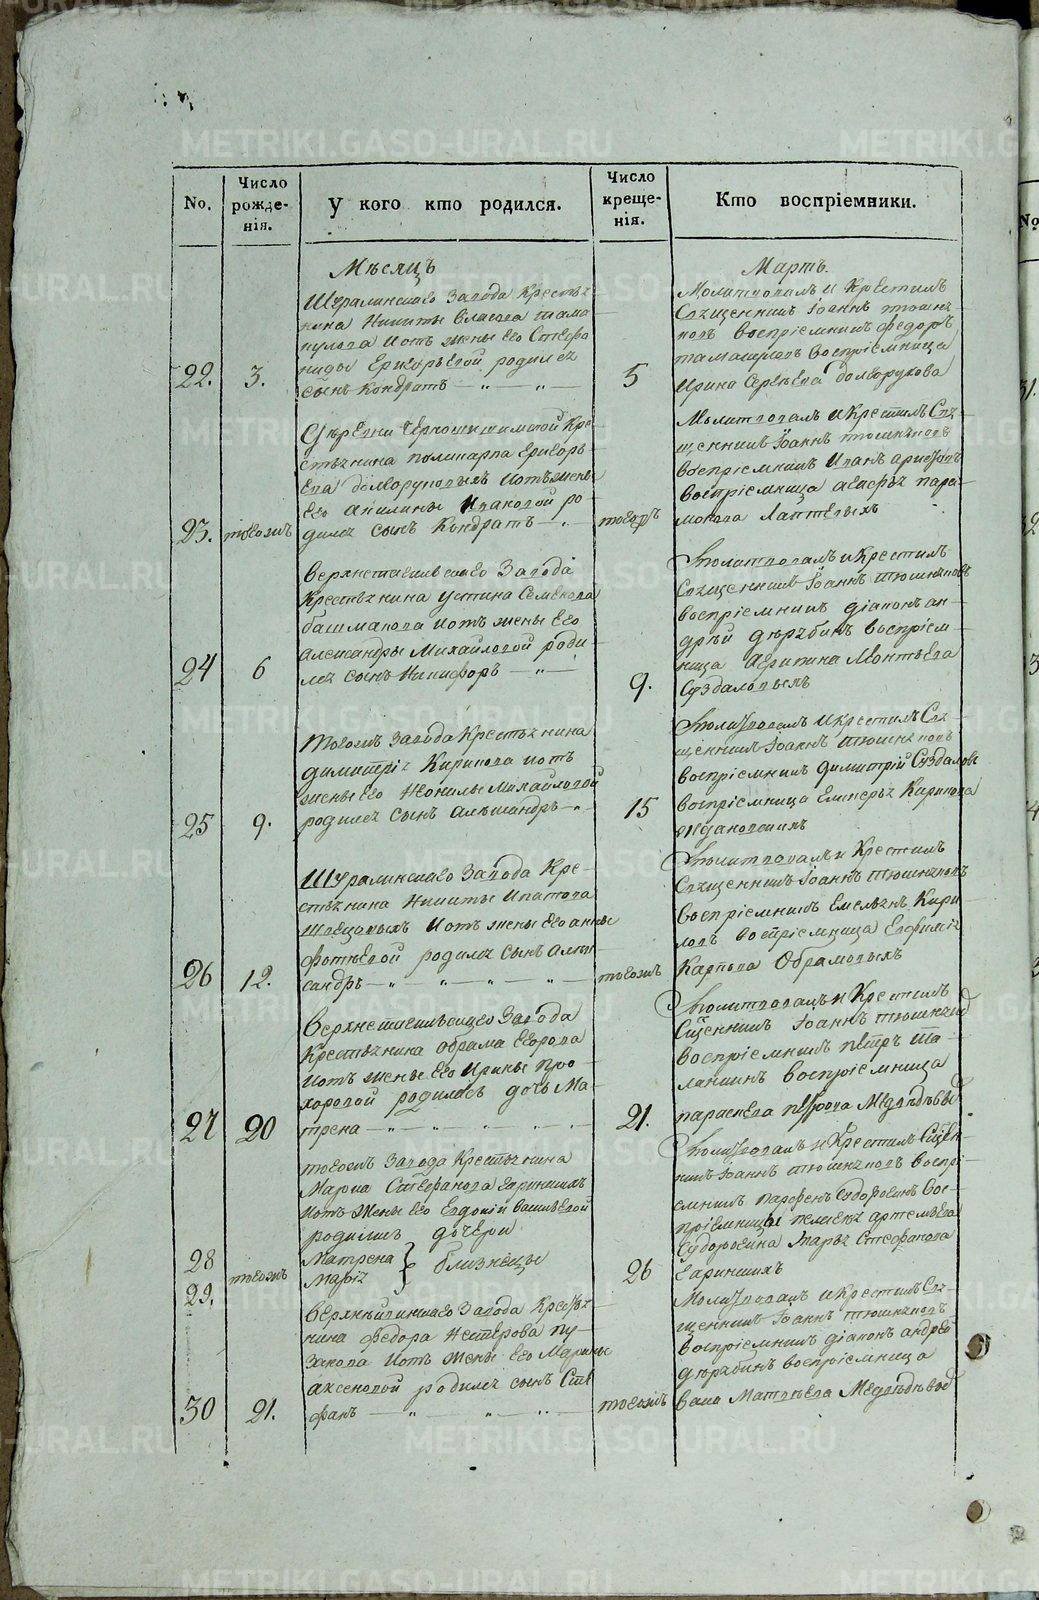 No.
Число рожде-нія.
У кого кто родился.
Число креще-нія.
Кто воспріемники.
Мѣсяцъ
Мартъ.
22.
3.
Шуралинскаго Завода Крестья
нина Никиты Власова
нулова иотъ жены Его Стефа
ниды Григорьевой родился
сынъ Кондратъ
5
Молитвовалъ и Крестилъ
Священникъ Іоаннъ тюшня
ковъ воспріемникъ федоръ
воспріемница
Ирина Сергѣева долгорукова
23.
тогожъ
Деревни Черношишимской Кре
стьянина поликарпа Григорь
Ева долгоруковыхъ иотъ жены
Его Акилины Ивановой ро
дился сынъ Кондратъ
тогожъ
Молитвовалъ и Крестилъ Свя
щенникъ Іоаннъ тюшняковъ
воспріемникъ Иванъ
воспріемница агафья пара
монова Лаптевыхъ
24
6
верхнетагильскаго Завода
Крестьянина устина Семенова
башмакова иотъ жены Его
александры Михайловой роди
лся сынъ Никифоръ
9.
молитвовалъ и Крестилъ
Священникъ Іоаннъ тюшняковъ
воспріемникъ діаконъ ан
дрей дерябинъ воспріем
ница Агрипина Леонтьева
Суздаловыхъ
25
9.
Тогожъ Завода Крестьянина
димитрія Кирилова иотъ
жены Его Неонилы Михайловой
родился сынъ Александръ
15
молитвовалъ и Крестилъ Свя
щенникъ Іоаннъ тюшняковъ
воспріемникъ димитрій Суздаловъ
воспріемница Гликерья Кирилова
26
12.
Шуралинскаго Завода Кре
стьянина Никиты Ипатова
Швецовыхъ иотъ жены Его анны
фотіевой родился сынъ алек
сандръ
тогожъ
молитвовалъ и Крестилъ
Священникъ Іоаннъ тюшняковъ
воспріемникъ Емельянъ Кири
ловъ воспріемница Евфимія
Карпова Обрамовыхъ
27
20
верхнетагильскаго Завода
Крестьянина обрама Егорова
иотъ жены Его Ирины про
хоровой родилась дочь Ма
трена
21.
молитвовалъ и Крестилъ
Сщенникъ Іоаннъ тюшняковъ
воспріемникъ петръ ша
ланинъ воспріемница
параскева петрова Медведевыхъ
28
29.
тогожъ
тогожъ Завода Крестьянина
Марка Стефанова гаринскихъ
иотъ жены Его Евдокіи васильевой
родились дочери
Матрена
Марія
} близнецы
26
молитвовалъ и Крестилъ Сщен
никъ Іоаннъ тюшняковъ воспрі
емникъ парфенъ Сидоровъ вос
пріемницы пелагея артемьева
Сидоровина марья Стефанова
гаринскихъ
30
21.
верхнейвинскаго Завода Крестья
нина федора Нестерова пу
закова иотъ жены Его Марины
аксеновой родился сынъ Сте
фанъ
тогожъ
Молитвовалъ и Крестилъ Свя
щенникъ Іоаннъ тюшняковъ
воспріемникъ діаконъ андрей
дерябинъ воспріемница
Матвѣева Медведевой